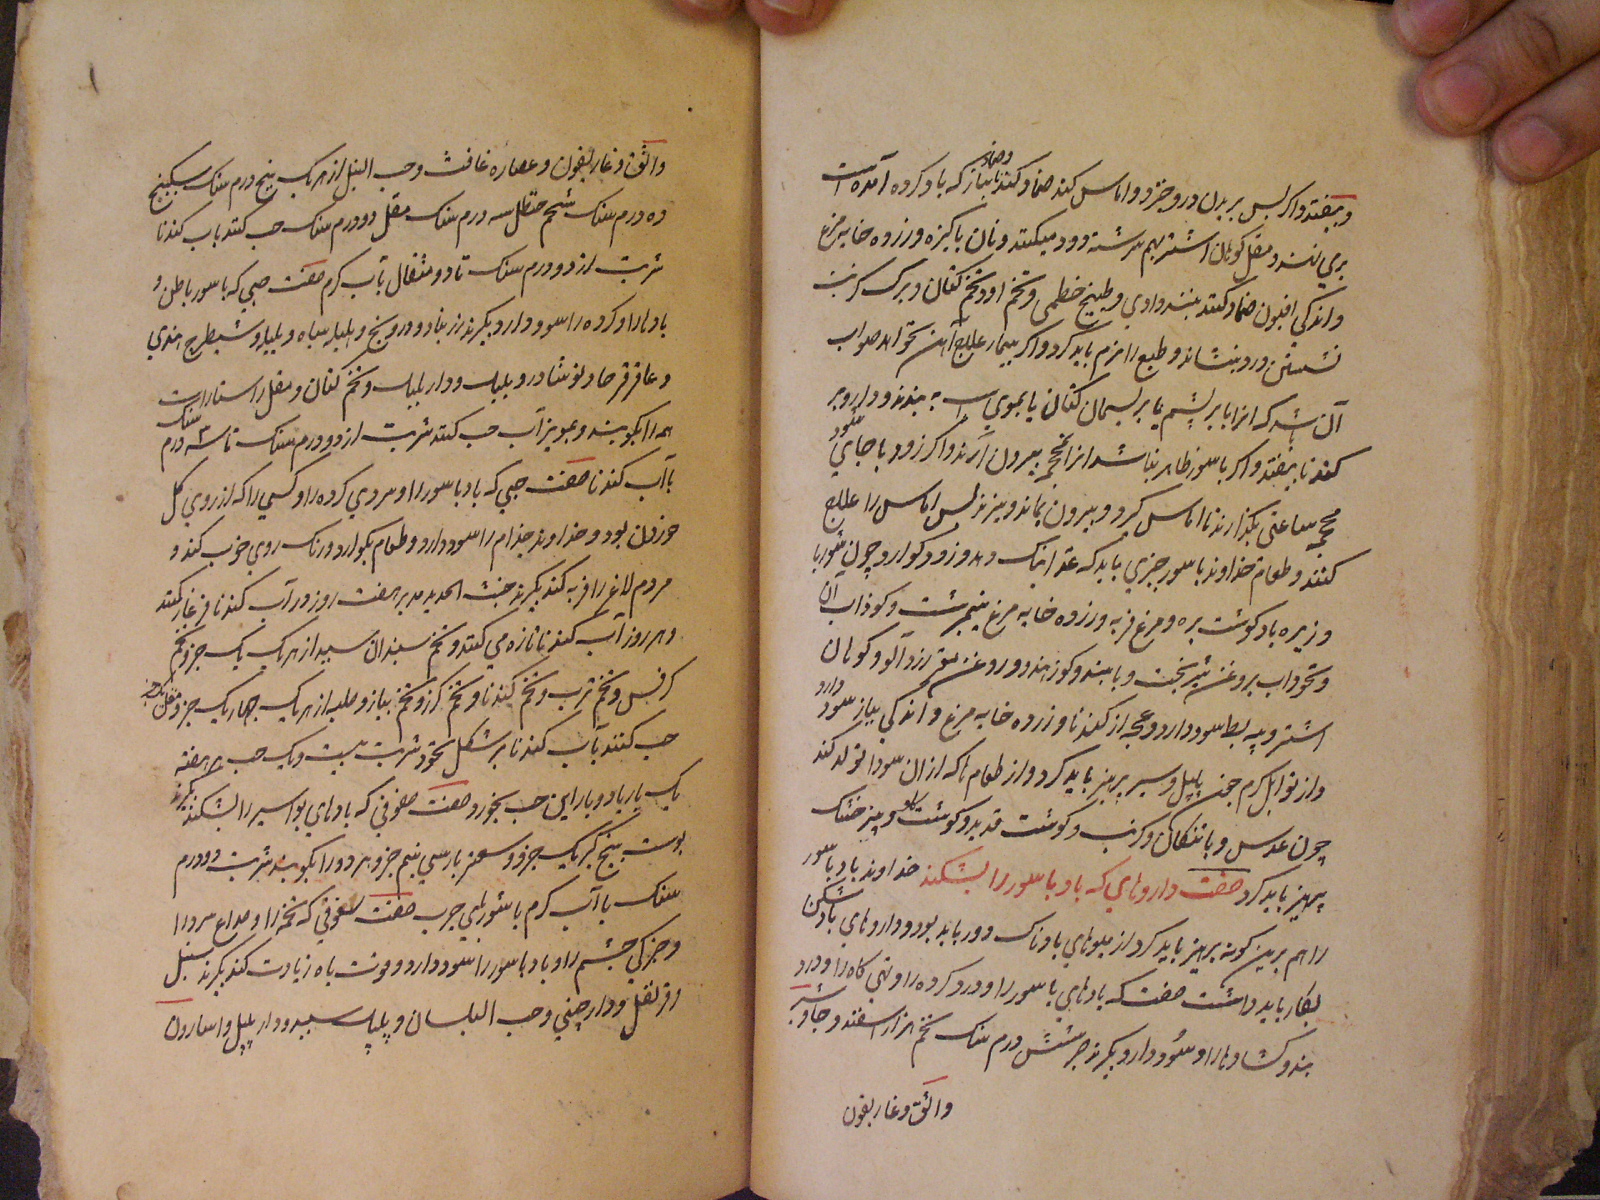 وبیفتد و اگر پس بریدن درد خیزد و اماس کند ضماد کنند تا پیاز که یاد کرده آمده است
وضماد
بری کنند و مقل کوهان اشتر بهم سرشته دود میکنند و نان پاکیزه و زرده خایه مرغ
و اندکی افیون ضماد کنند و طبیخ خطمی و تخم او و تخم کتان و برگ کرنب
نشستن درو بنشاند و طبع را نرم باید کرد و اگر بیمار علاج آهن نخواهد صواب
آن باشد که انرا بابریشم یا بریسمان کتان یا بموی اسب به بندند و دارو بر
کنند تا بیفتد و اگر باسور ظاهر نباشد انرا بمحجمه بیرون آرند و اگر زود با جای شود
محجمه ساعتی بگذارند تا اماس گیرد و بیرون بماند و ببرند پس اماس را علاج
کنند و طعام خداوند باسور چیزی باید که غذا نیک دهد و زود گوارد چون شوربا
و زیره با و گوشت بره و مرغ فربه و زرده خایه مرغ نیم برشت و گوذاب آن
و نخوداب بروغن شیرپخت و با سپند و گوز هندو و روغن مغز زردآلو و کوهان
اشتر و پیه بط سود دارد و عجه از گندنا و زرده خایه مرغ و اندکی پیاز سود دارد
و از توابل گرم چون پلپل و سیر پرهیز باید کرد و از طعام ها که ازان سودا تولد کند
چون عدس و باتنگان و کرنب و گوشت قدید و گوشت گاو و پنیر خشک
پرهیز باید کرد صفت داروهای که باد باسور را بشکند خداوند باد باسور
را هم برین گونه پرهیز باید کرد از میوهای بادناک دور باید بود و داروهای بادشکن
بکار باید داشت صفت که بادهای باسور را و درد گرده را و تهی گاه را و درد
بندگشادها را سود دارد بگیرند شش درم سنگ تخم هزار اسفند و جاوشیر
واشق و غاریقون
واشق و غاریقون و عصاره غافث و حب النیل از هر یک پنج درم سنگ سکبینج
ده درم سنگ شحم حنظل سه درم سنگ مقل دو درم سنگ حب کنند باب گندنا
شربت از دو درم سنگ تا دو مثقال بآب گرم صفت حبی که باسور باطن و
باد ها را و گرده را سود دارد بگیرند زرنباد و درونج و هلیله سیاه و بلیله و شیطرج هندی
و عاقرقرحا و نوشادر و پلپل و دارپلپل و تخم کتان و مقل راستاراست
همه را بکوبند و بمویز آب حب کنند شربت از دو درم سنگ تا سه درم سنگ
باآب گندنا صفت حبی که باد باسور را و سردی گرده را و کسی را که از روی گل
خوردن بود و خداوند جذام را سود دارد و طعام بگوارد و رنگ روی خوب کند و
مردم لاغر را فربه کند بگیرند خبث الحدید مدبر هفت روز در آب گندنا فرغار کنند
و هر روز آب گندنا تازه می کنند و تخم سپندان سپید از هر یک یک جزو تخم
کرفس و تخم ترب و تخم گندنا و تخم گزر و تخم پیاز و حلبه از هر یک چهار یک جزو مقل یک جزو
حب کنند بآب گندنا بر شکل نخود شربت بیست و یک حب هر هفته
یک بار یا دو بار این حب بخورد صفت سفوفی که بادهای بواسیر را بشکند بگیرند
پوست بیخ کبر یک جزو و سعتر پارسی نیم جزو هر دو را بکوبند شربت دو درم
سنگ با آب گرم با شوربای چرب صفت سفوفی که تخمه را و صداع سرد را
و خیرگی چشم را و باد باسور را سود دارد و قوت باه زیادت کند بگیرند سنبل
و قرنفل و دارچینی و حب البلسان و پلپل سپید و دار پلپل و اسارون